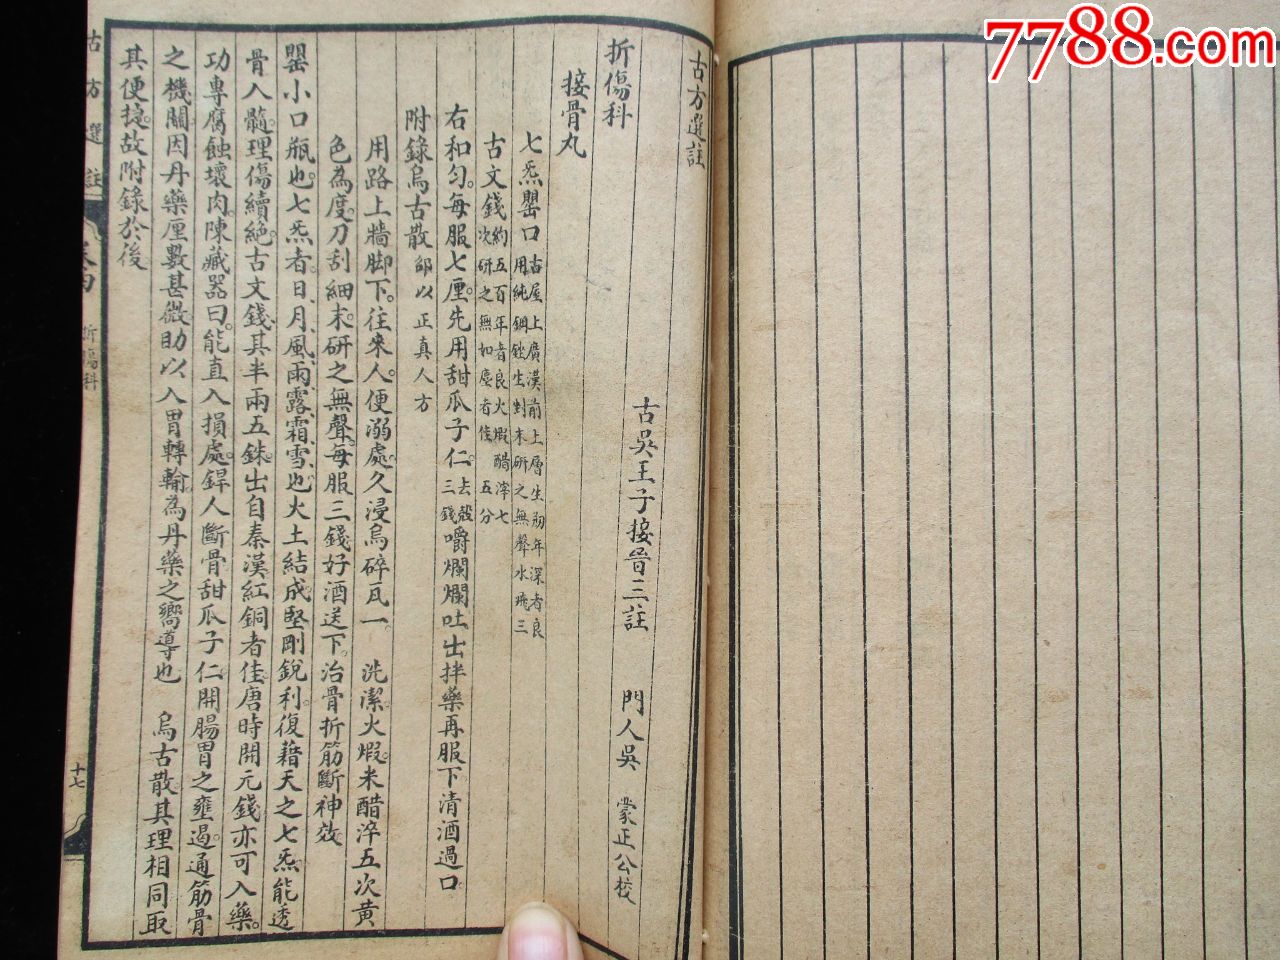 7788.com
古方選註
折傷科
古吳王子接晉三註　門人吳　蒙正公校
接骨丸
七炁罌口古屋上廣漢前上層生剏年深者良用純鋼銼生對末研之無聲水飛三
古文錢約五百年者良火煅醋淬七次研之無如塵者佳五分
右和勻。每服七厘。先用甜瓜子仁。去殼三錢嚼爛爛吐出拌藥再服下清酒過口
附錄烏古散邵以正真人方
用路上牆脚下。往來人。便溺處。久浸烏碎瓦一。洗潔。火煅。米醋淬五次黃
色為度。刀刮細末。研之無聲。每服三錢好酒送下。治骨折筋斷神效
罌小口瓶也。七炁者。日、月、風、雨、露、霜、雪、也火土結成堅剛銳利。復藉天之七炁能透
骨入髓。理傷續絕。古文錢。其半兩五銖。出自秦漢紅銅者佳。唐時開元錢亦可入藥。
功專腐蝕壞肉。陳藏器曰。能直入損處。銲人斷骨甜瓜子仁。開腸胃之壅遏。通筋骨
之機關因丹藥厘數甚微助以入胃轉輸。為丹藥之嚮導也　烏古散。其理相同取
其便捷。故附錄於後
古方選註
卷四
折傷科
十七